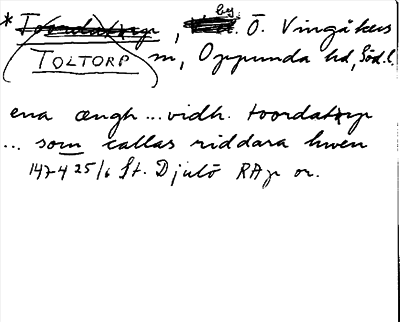 * Toordatorp, by Ö. Vingåkers
TOLTORP sn, Oppunda hd, Söd.l.
ena ængh ... vidh. toordatorp
... som callas riddara hwen
1474 25/6 St. Djulö RAp or.